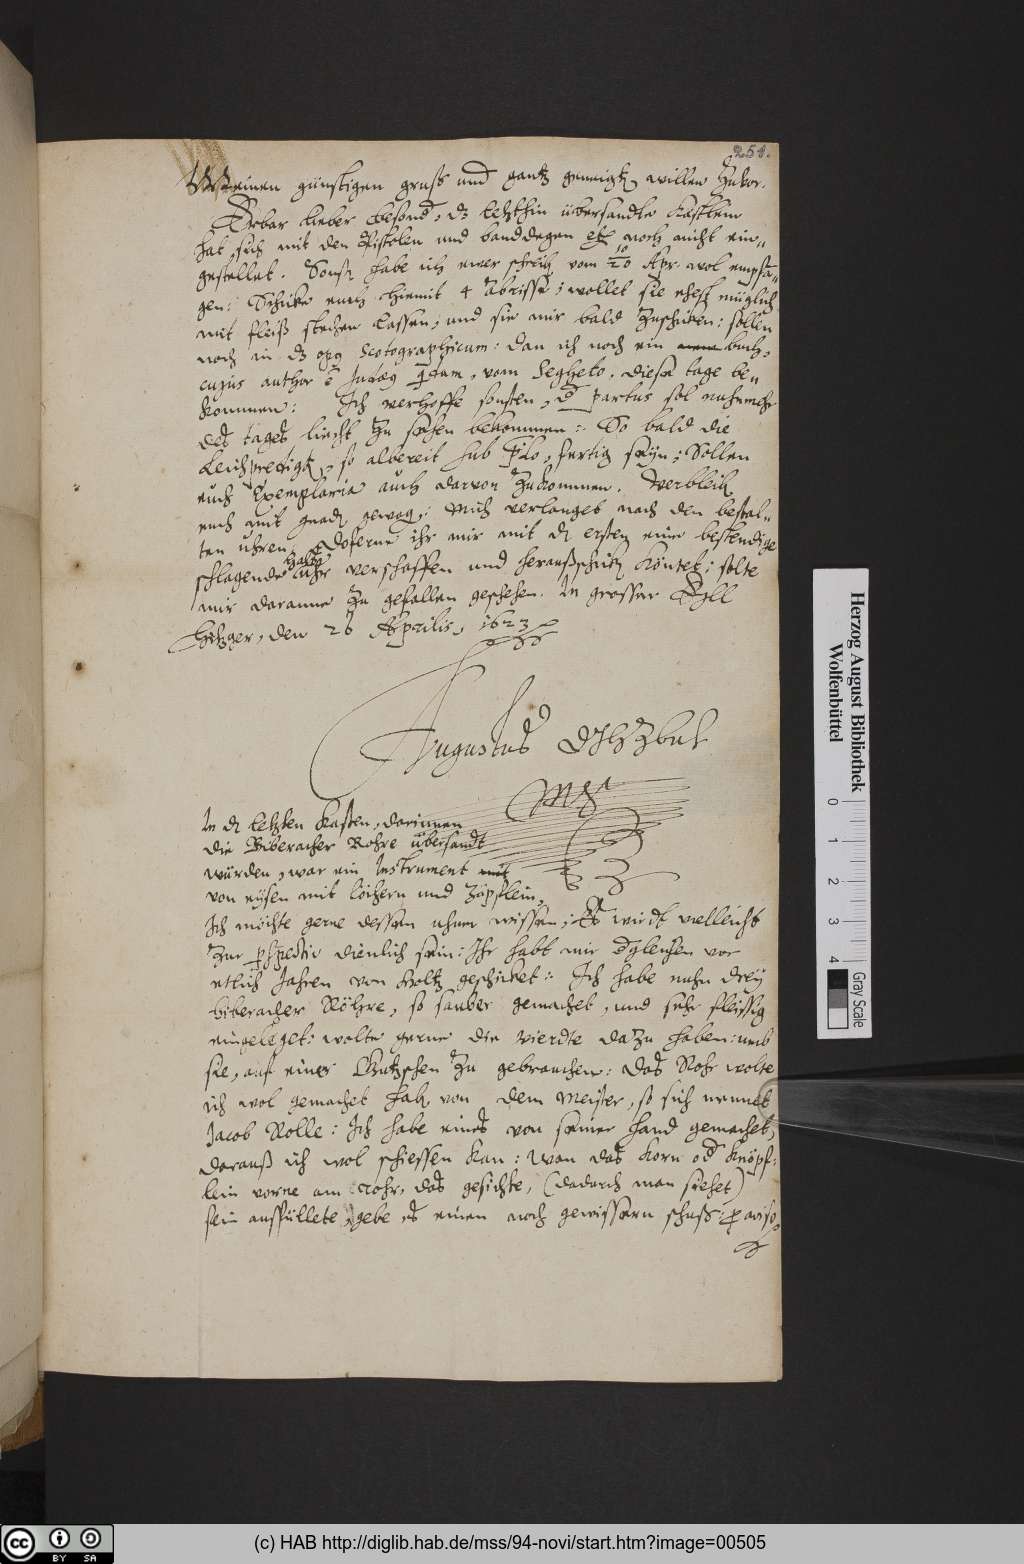 251.
Meinen günstigen gruß und gantz geneigtē willen Zuvor.
Erbar lieber besondr, dz letzthin übersandte Kästlein
hat sich mit den Pistolen und banddegen etc noch nicht ein-
gestellet. Sonst habe ich ewer schreibē vom 10/20 Apr. wol empfā-
gen: Schicke euch hiemit 4 Abrisse; wollet sie ehest müglich
mit fleiß stechen lassen, und sie mir bald zuschicken: sollen
noch in dz opq Scotographicum: dan ich noch ein buch,
cujus author ē Judæq qdam, vom Segheto, diese tage be-
kommen: Ich verhoffe sonsten, dr partus sol nuhmehr
des tages liecht zu sehen bekommen: So bald die
Leichpredigt, so albereit sub plo, fertig seyn; Sollen
euch Exemplaria auch darvon zukommen. Verbleibē
euch mit gnadē gewog: Mich verlanget nach den bestal-
ten uhren, Doferne ihr mir mit dr ersten eine bestendige
schlagende halß uhr verschaffen und heraußschickē köntet; solte
mir daranne zu gefallen geschehen. In grosser Eyll
Hitzger, den 26 Aprilis, 1623
Augustus DJHZBUL
Mpa
In dr letzten Kasten, darinnen
die Biberacher Rohre übersandt
würden, war ein Instrument mit
von eysen mit löchern und Zäpflein,
Ich möchte gerne dessen uhsum wissen; Es wirdt velleicht
Zur pspectiv dienlich sein: Ihr habt mir dergleichen vor
etlich Jahren von holtz geschicket: Ich habe nuhn drey
biberacher Röhre, so sauber gemachet, und sehr fleissig
eingeleget: wolte gerne die vierdte dazu haben: umb
sie, auf einer Gutzschen zu gebrauchen: das Rohr wolte
ich wol gemachet habē von dem Meister, so sich nennet
Jacob Rolle: Ich habe eines von seiner hand gemachet,
darauß ich wol schiessen kan: Wan das korn odr knöpf-
lein vorne am Rohr, das gesichte, (dadurch man siehet)
fein ausfüllete, gebe es einen noch gewissern schuß: p aviso
Herzog August Bibliothek
Wolfenbüttel
0 1 2 3 4
Gray Scale
cc BY SA
(c) HAB http://diglib.hab.de/mss/94-novi/start.htm?image=00505